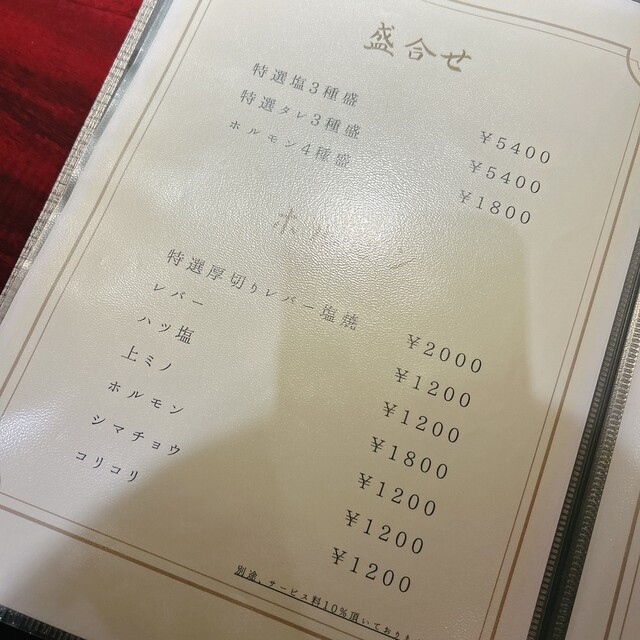 盛合せ
特選塩3種盛 ¥5400
特選タレ3種盛 ¥5400
ホルモン4種盛 ¥1800
ホルモン
特選厚切りレバー塩焼 ¥2000
レバー ¥1200
ハツ塩 ¥1200
上ミノ ¥1800
ホルモン ¥1200
シマチョウ ¥1200
コリコリ ¥1200
別途、サービス料10%頂いており